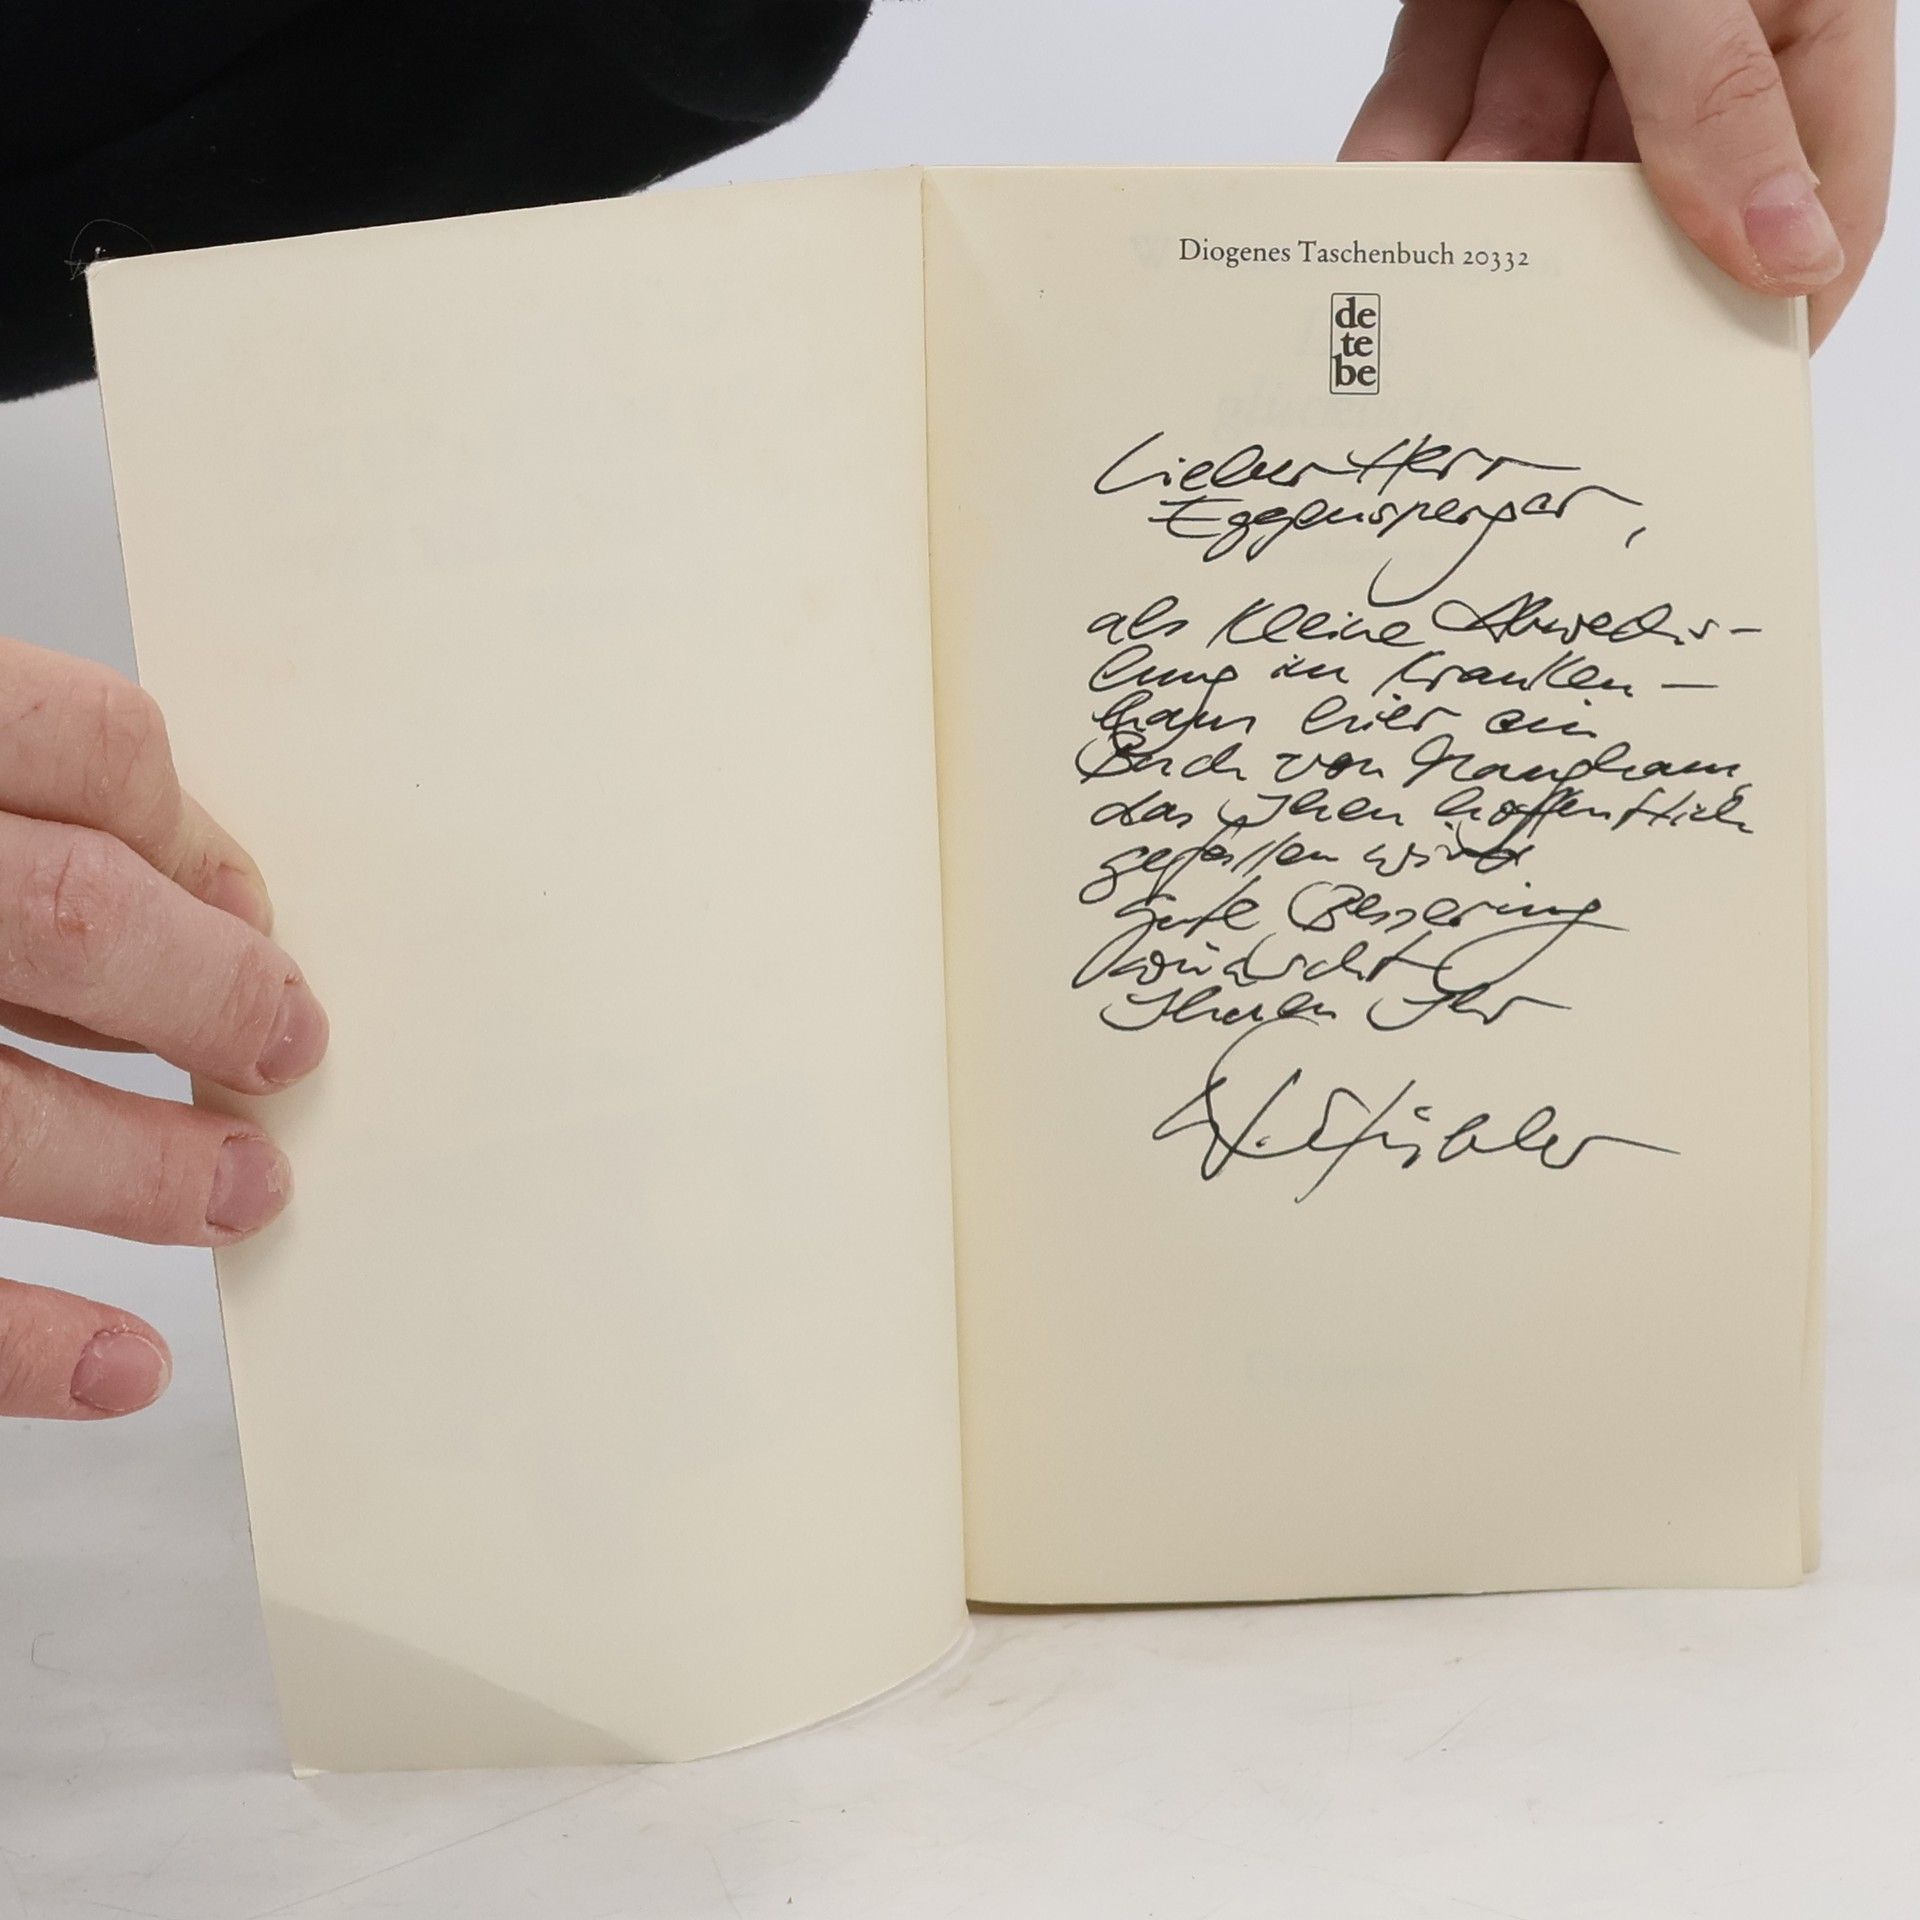 Diogenes Taschenbuch 20332
de
te
be
Lieber Herr
Eggensperger,
als kleine Abwechs-
lung im Kranken-
haus hier ein
Buch von Maugham,
das Ihnen hoffentlich
gefallen wird
gute Besserung
wünscht
Ihnen Ihr